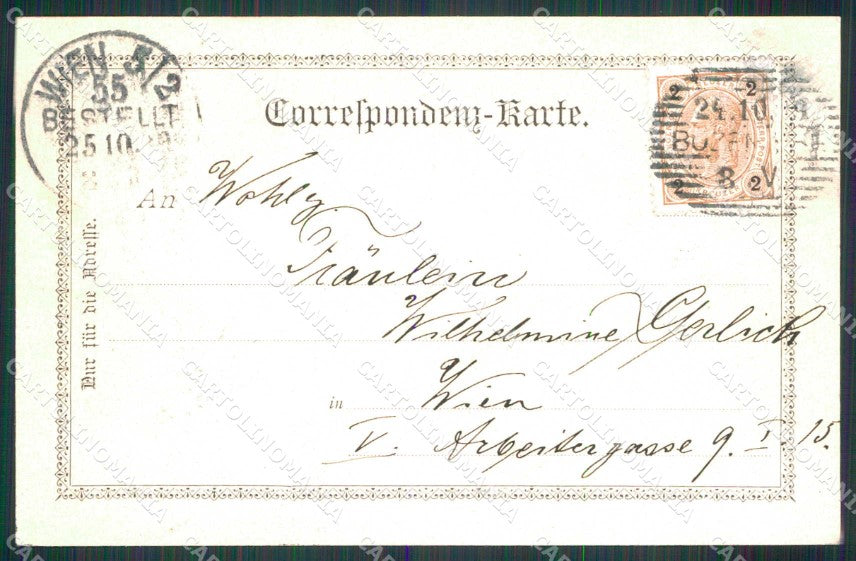 WIEN 5/2
55
BESTELLT
25 10
Correspondenz-Karte.
2 2
24.10
BOZEN 1
8 V
2 2
An Wohlg.
Fräulein
Wilhelmine Gerlich
in Wien
V. Arbeitergasse 9. I. 15.
Nur für die Adresse.
CARTOLINOMANIA